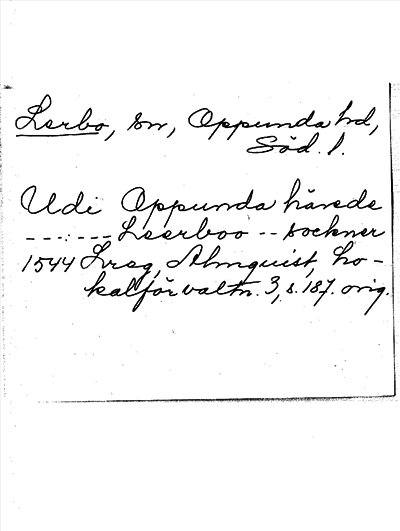 Lerbo, sn, Oppunda hd,
Söd. l.
Udi Oppunda härede
------- Leerboo -- sockner
1544 Lreg, Almquist, Lo-
kalförvaltn. 3, s. 187. orig.